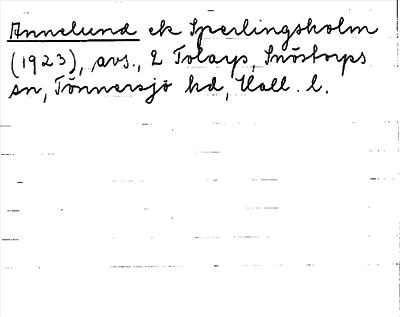 Annelund ek Sperlingsholm
(1923), avs., 2 Tolarp, Snöstorps
sn, Tönnersjö hd, Hall. l.